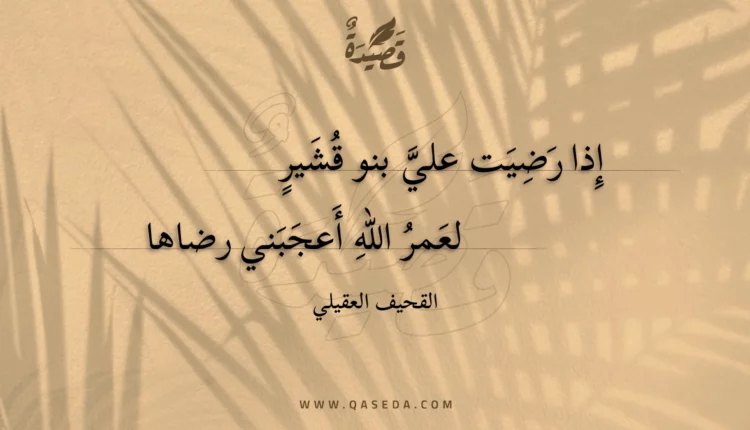 قَصِيدَةٌ
إِذا رَضِيَت عليَّ بنو قُشَيرٍ
لعَمرُ اللّهِ أَعجَبَني رضاها
القحيف العقيلي
WWW.QASEDA.COM